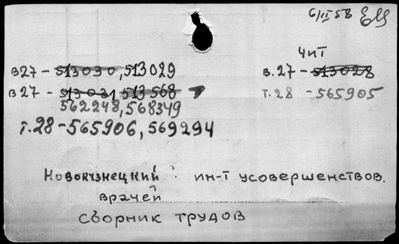 6/II 58
чит
в27 - 513030, 513029
в. 27 - 513028
в27 - 513031 513568
т. 28 - 565905
562248, 568349
т. 28 - 565906, 569294
Новокузнецкий ин-т усовершенствов.
врачей
сборник трудов